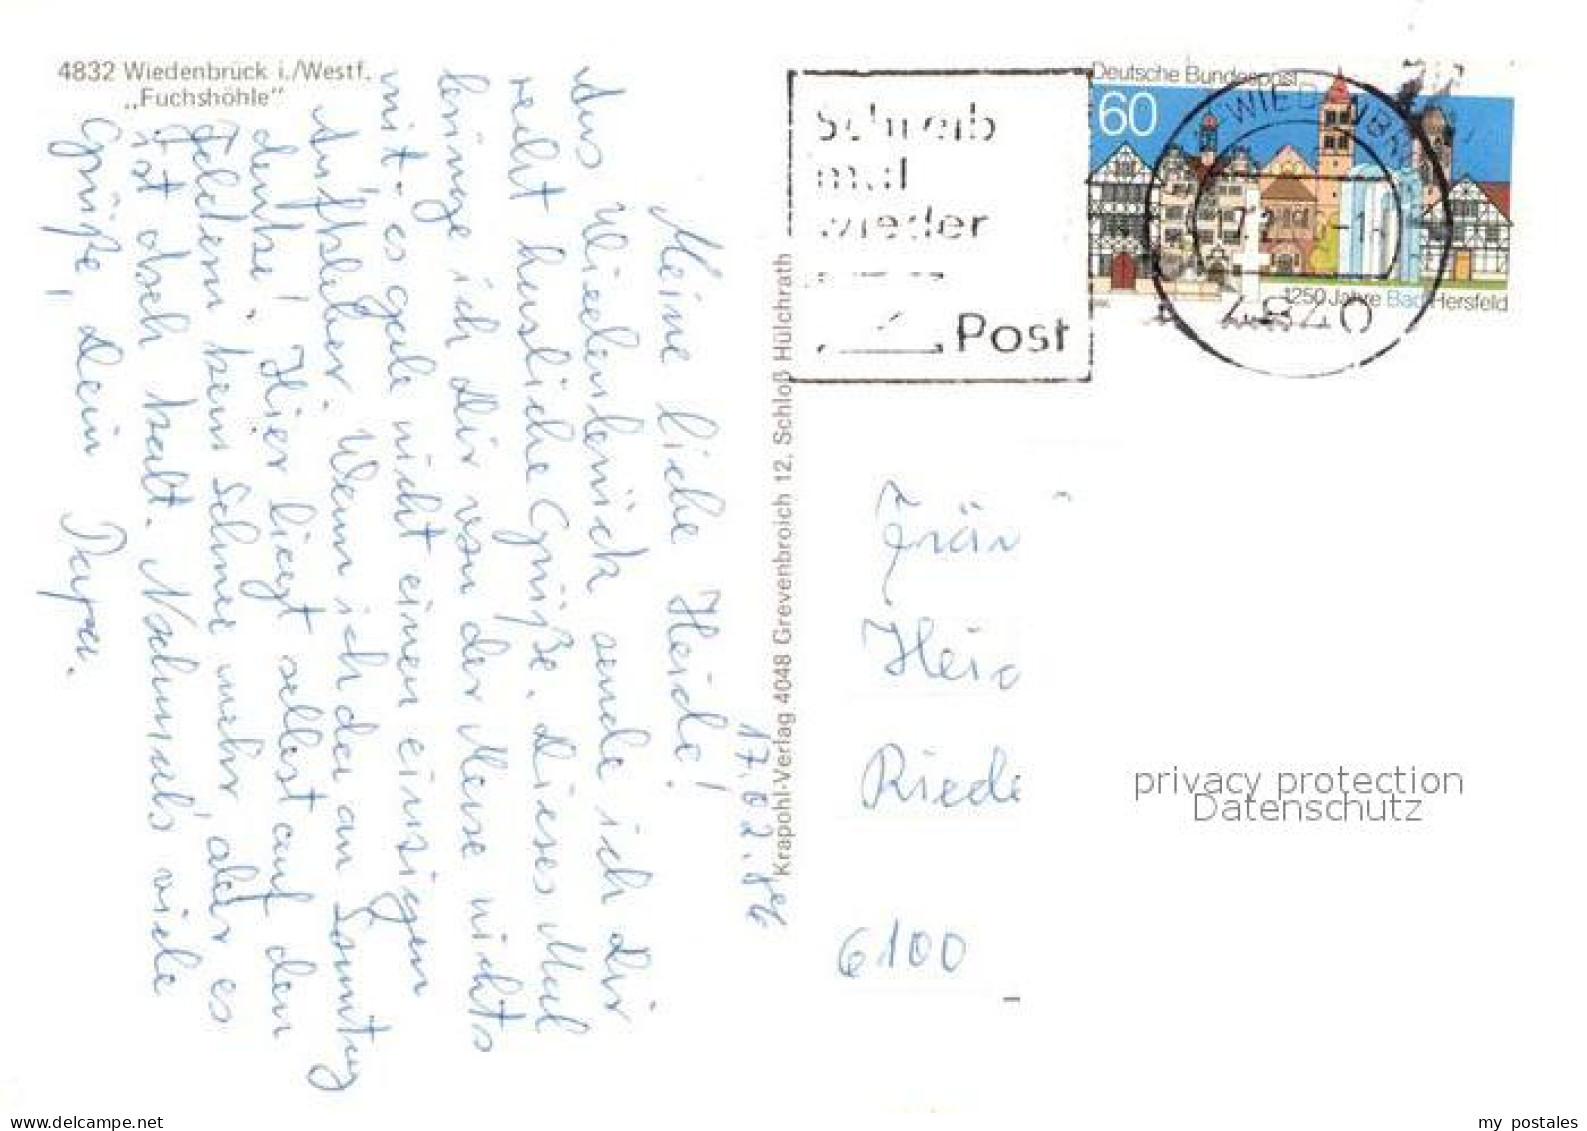 4832 Wiedenbrück i./Westf.
„Fuchshöhle"
17.02.86
Meine liebe Heide!
Aus Wiedenbrück sende ich Dir
recht herzliche Grüße. Dieses Mal
bringe ich Dir von der Messe nichts
mit. es gab nicht einen einzigen
Aufkleber. Wenn ich da an Sonntag
denke! Hier liegt selbst auf den
Feldern kein Schnee mehr, aber es
ist doch kalt. Nochmals viele
Grüße, Dein Papa.
Krapohl-Verlag 4048 Grevenbroich 12, Schloß Hülchrath
Schreib
mal
wieder
Post
Deutsche Bundespost
60
1250 Jahre Bad Hersfeld
WIEDENBR
4840
Frär
Heid
Riede
6100
privacy protection
Datenschutz
www.delcampe.net
my_postales